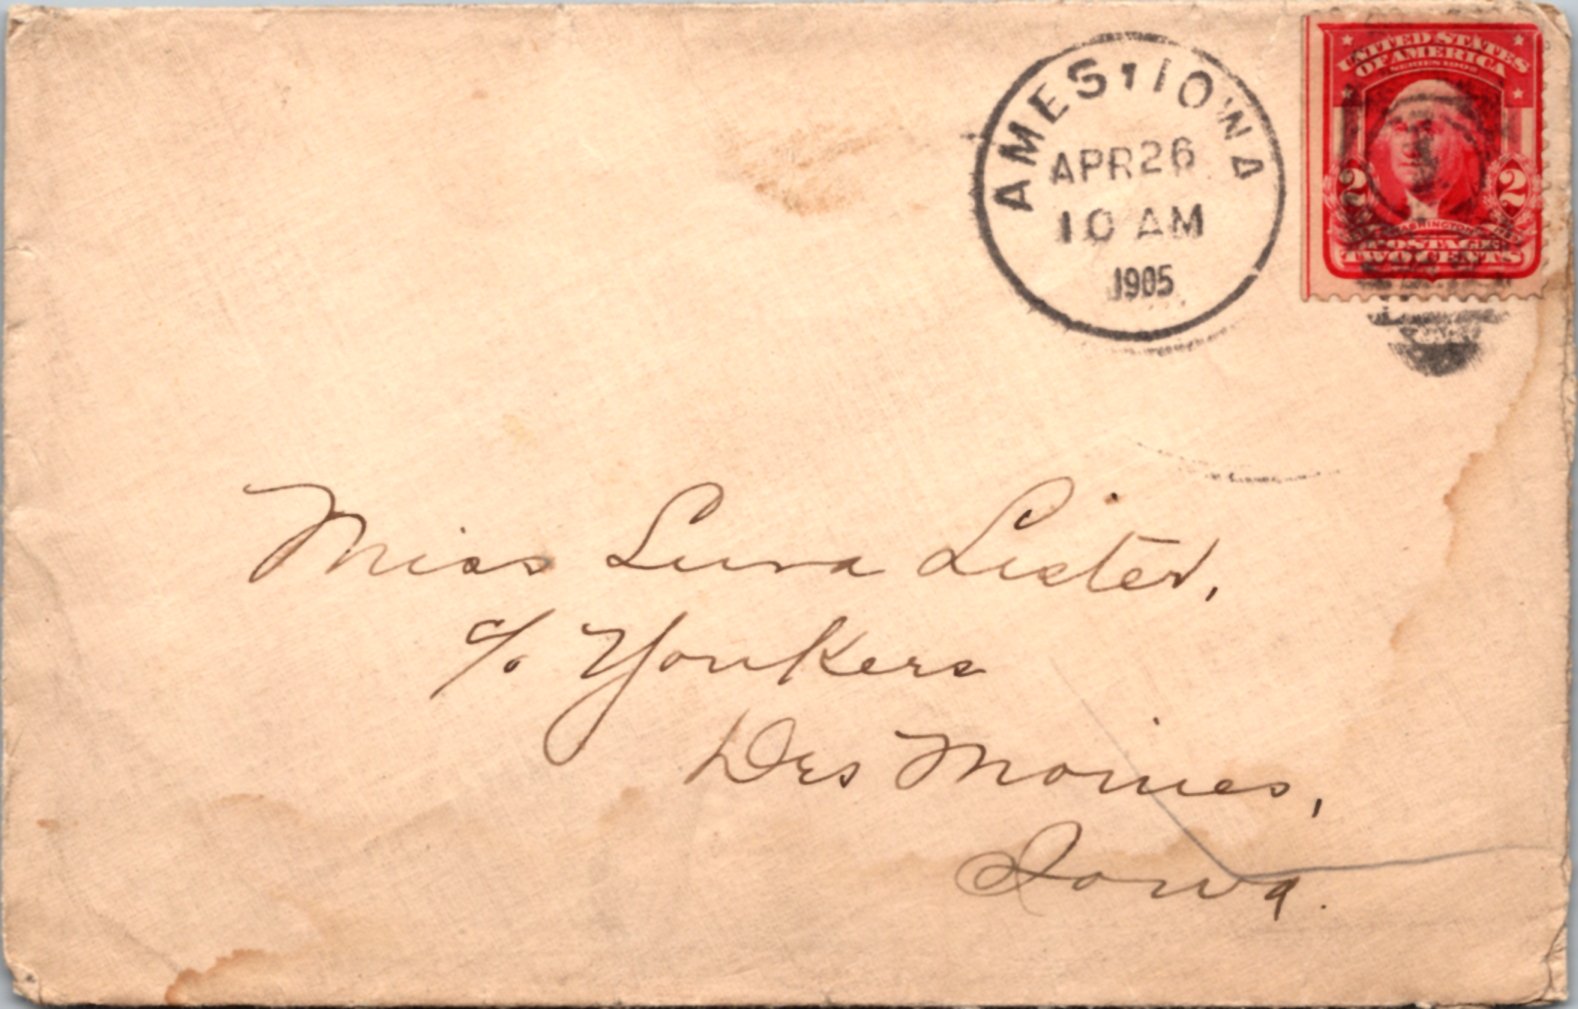 AMES, IOWA
APR 26
10 AM
1905
UNITED STATES
OF AMERICA
SERIES 1902
2 2
WASHINGTON
POSTAGE
TWO CENTS
Miss Luva Lister,
c/o Younkers
Des Moines,
Iowa.